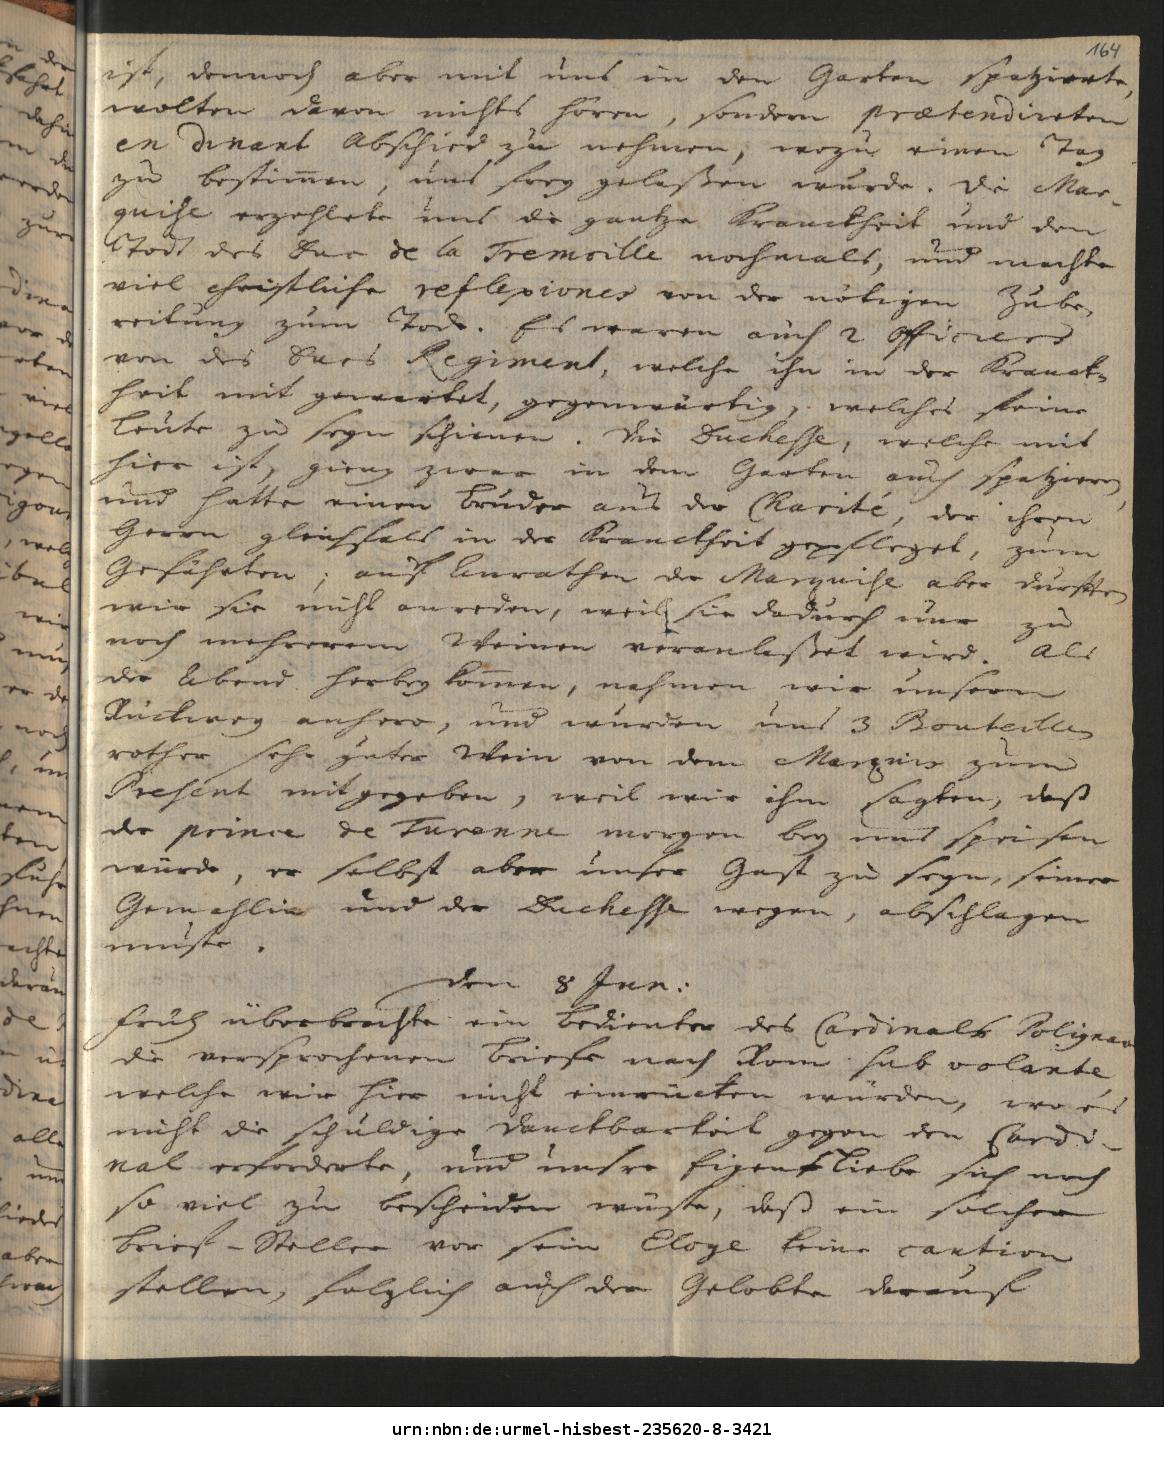 164
ist, dennoch aber mit uns in den Garten spatzirete,
wolten davon nichts hören, sondern prætendireten
en dinant Abschied zu nehmen, wozu einen Tag
zu bestimen, uns frey gelaßen wurde. Die Mar-
quise erzehlete uns die gantze Kranckheit und den
Todt des Duc de la Tremoille nochmals, und machte
viel christliche reflexiones von der nötigen Zube-
reitung zum Tode. Es waren auch 2 Officiers
von des Ducs Regiment, welche ihn in der Kranck-
heit mit gewartet, gegenwärtig, welches feine
Leute zu seyn schienen. Die Duchesse, welche mit
hier ist, gieng zwar in dem Garten auch spatziren,
und hatte einen Bruder aus der Charité, der ihren
Herrn gleichfals in der Kranckheit gepfleget, zum
Gefährten; auf Anrathen der Marquise aber durften
wir sie nicht anreden, weil sie dadurch nur zu
noch mehrerem Weinen veranlaßet wird. Als
der Abend herbey komen, nahmen wir unsern
Rückweg anhero, und wurden uns 3 Bouteilles
rother sehr guter Wein von dem Marquis zum
Present mitgegeben, weil wir ihm sagten, daß
der prince de Turenne morgen bey uns speisen
würde, er selbst aber unser Gast zu seyn, seiner
Gemahlin und der Duchesse wegen, abschlagen
muste.
den 8 Jun:
Früh überbrachte ein Bedienter des Cardinals Polignac
die versprochenen Briefe nach Rom sub volante
welche wir hier nicht einrücken würden, wo es
nicht die schuldige Danckbarkeit gegen den Cardi-
nal erforderte, und unsre Eigenliebe sich noch
so viel zu bescheiden wüste, daß ein solcher
Brief-Steller vor sein Eloge keine caution
stellen, folglich auch der Gelobte darauf
urn:nbn:de:urmel-hisbest-235620-8-3421